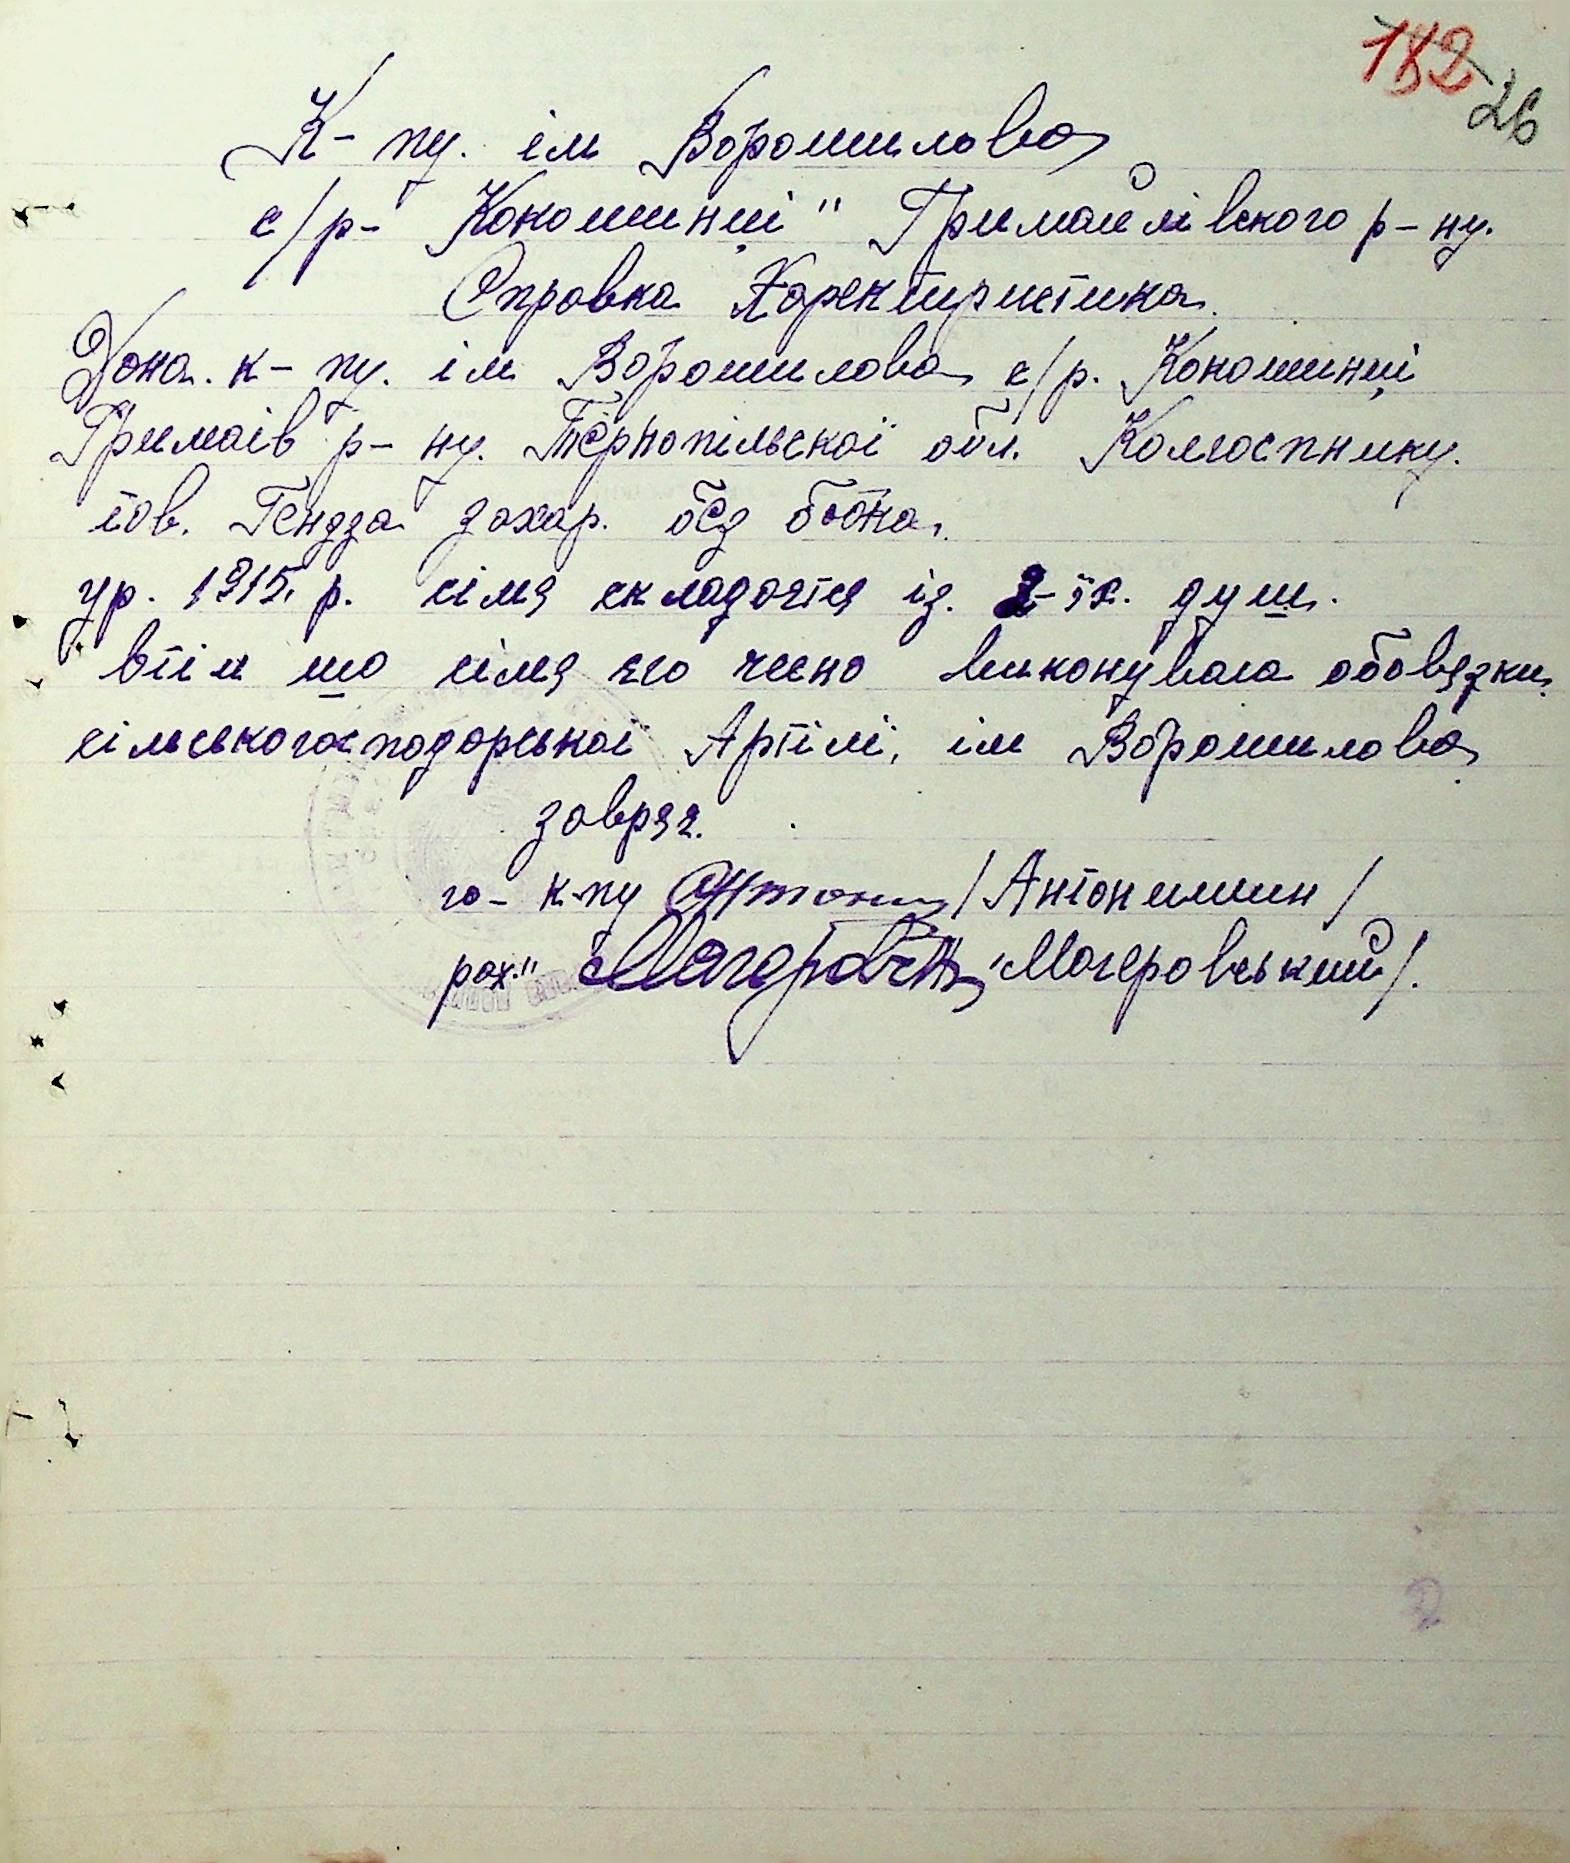 182
26
К-пу. ім Ворошилова
с/р- Кокошинці" Гримайлівского р-ну.
Справка Характиристика.
Дана. к-пу. ім Ворошилова с/р. Кокошинці
Гримаів р-ну. Тернопільскої обл. Колгоспнику.
тов. Гендза захар. без батка.
ур. 1915. р. сімя складаєтся із. 2-їх. душ.
втім шо сімя єго чесно виконувала обовязки.
сільськогосподорської Артілі, ім Ворошилова
завіряє.
го- к-пу /Антонишин/
рах." /Магеровський/.